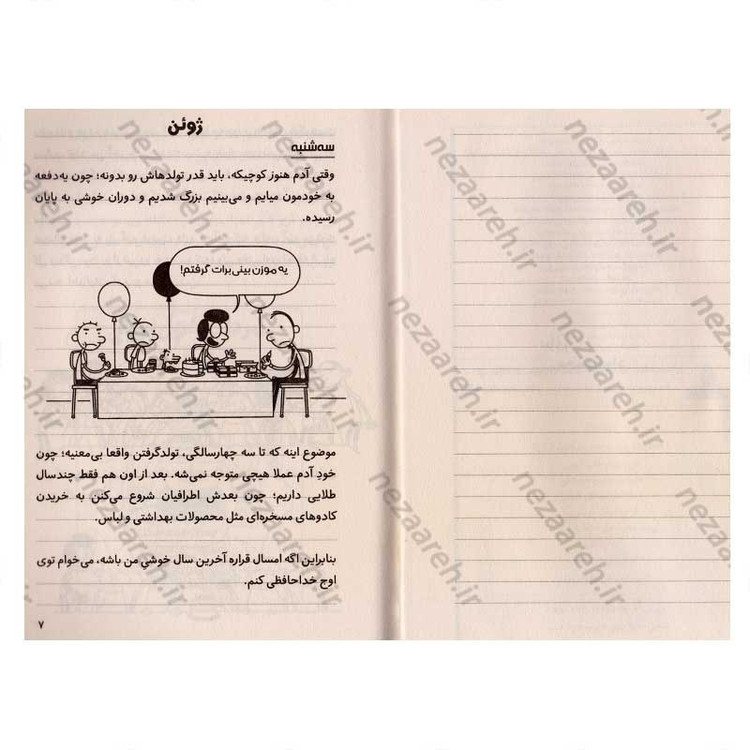 ژوئن
سه‌شنبه
وقتی آدم هنوز کوچیکه، باید قدر تولدهاش رو بدونه؛ چون یه‌دفعه
به خودمون میایم و می‌بینیم بزرگ شدیم و دوران خوشی به پایان
رسیده.
یه موزن بینی برات گرفتم!
موضوع اینه که تا سه چهارسالگی، تولدگرفتن واقعا بی‌معنیه؛ چون
خود آدم عملا هیچی متوجه نمی‌شه. بعد از اون هم فقط چندسال
طلایی داریم؛ چون بعدش اطرافیان شروع می‌کنن به خریدن
کادوهای مسخره‌ای مثل محصولات بهداشتی و لباس.
بنابراین اگه امسال قراره آخرین سال خوشیِ من باشه، می‌خوام توی
اوج خداحافظی کنم.
۷
nezaareh.ir
nezaareh.ir
nezaareh.ir
nezaareh.ir
nezaareh.ir
nezaareh.ir
nezaareh.ir
nezaareh.ir